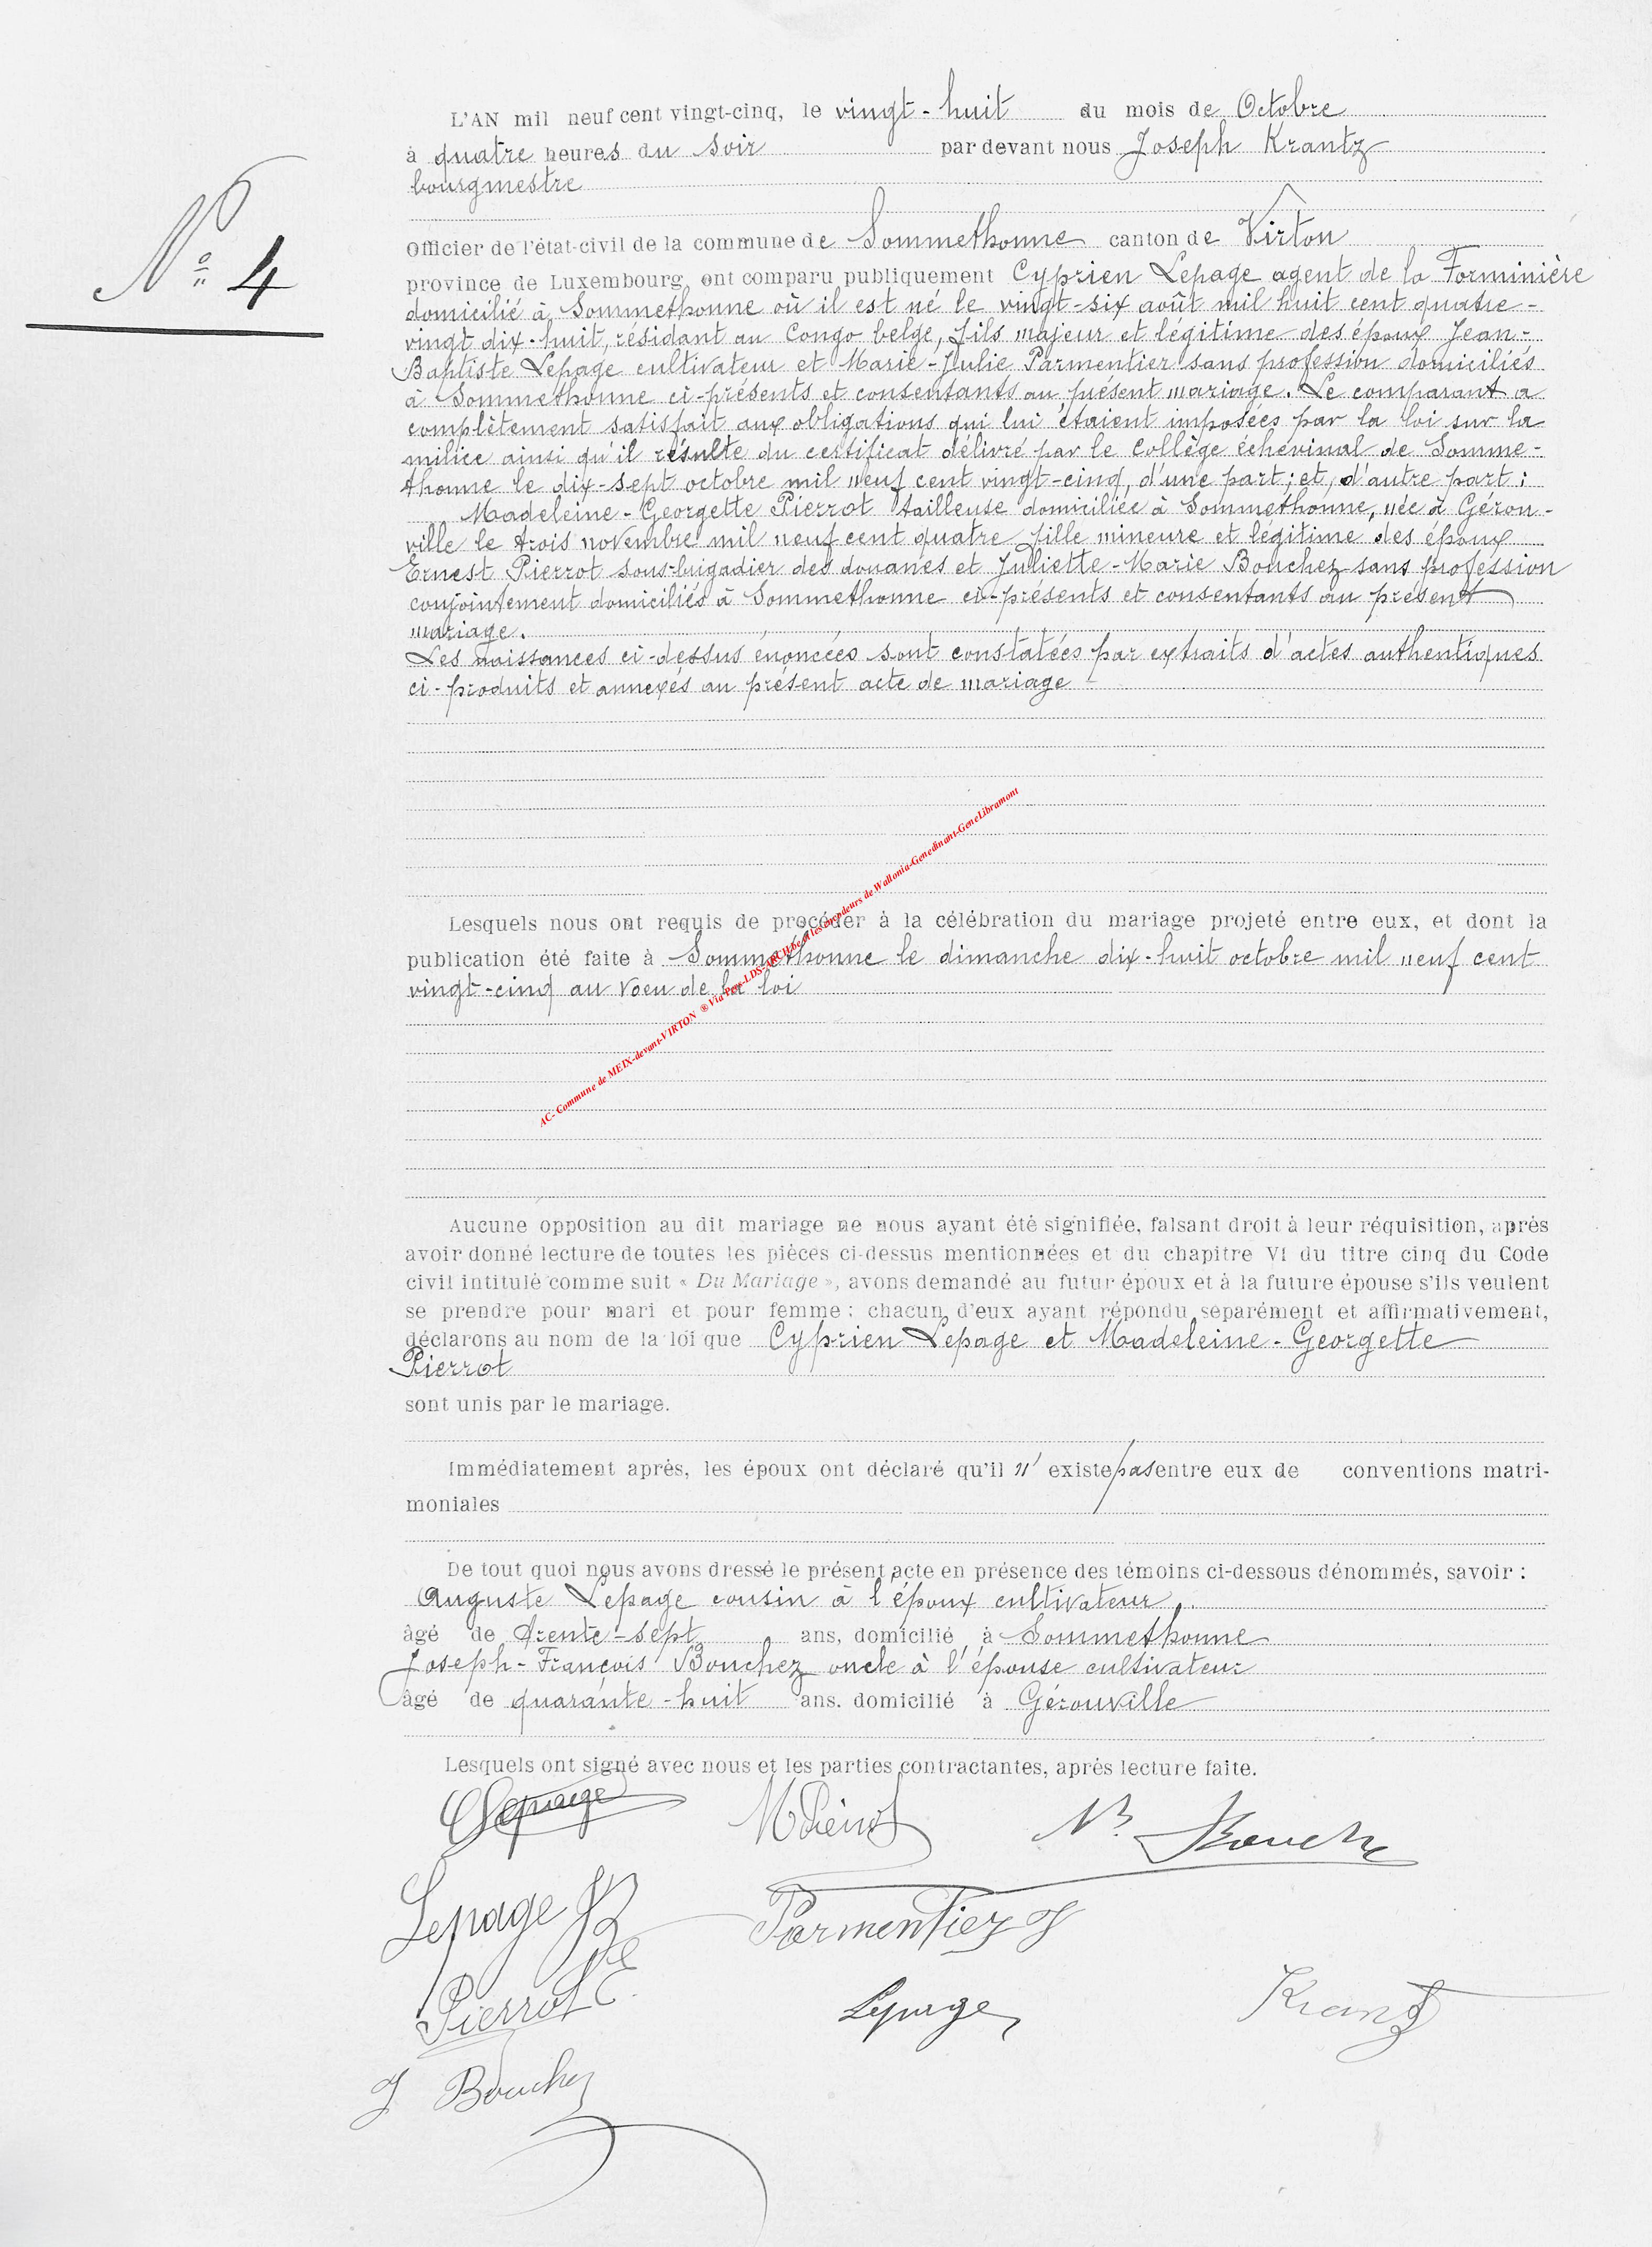 L'AN mil neuf cent vingt-cinq, le vingt-huit du mois de Octobre
à quatre heures du soir par devant nous Joseph Krantz
bourgmestre
N° 4
Officier de l'état-civil de la commune de Sommethonne canton de Virton
province de Luxembourg, ont comparu publiquement Cyprien Lepage agent de la Forminière
domicilié à Sommethonne où il est né le vingt-six août mil huit cent quatre-
vingt dix-huit, résidant au Congo belge, fils majeur et légitime des époux Jean-
Baptiste Lepage cultivateur et Marie-Julie Parmentier sans profession domiciliés
à Sommethonne ci-présents et consentants au présent mariage. Le comparant a
complètement satisfait aux obligations qui lui étaient imposées par la loi sur la
milice ainsi qu'il résulte du certificat délivré par le Collège échevinal de Somme-
thonne le dix-sept octobre mil neuf cent vingt-cinq, d'une part; et, d'autre part:
Madeleine-Georgette Pierrot tailleuse domiciliée à Sommethonne, née à Gérou-
ville le trois novembre mil neuf cent quatre fille mineure et légitime des époux
Ernest Pierrot sous-brigadier des douanes et Juliette-Marie Bouchez sans profession
conjointement domiciliés à Sommethonne ci-présents et consentants au présent
mariage.
Les naissances ci-dessus énoncées sont constatées par extraits d'actes authentiques
ci-produits et annexés au présent acte de mariage
Lesquels nous ont requis de procéder à la célébration du mariage projeté entre eux, et dont la
publication été faite à Sommethonne le dimanche dix-huit octobre mil neuf cent
vingt-cinq au voeu de la loi
AC- Commune de MEIX-devant-VIRTON ® Via Pers-LDS-ARCH.be et les encodeurs de Wallonia-Genedinant-GeneLibramont
Aucune opposition au dit mariage ne nous ayant été signifiée, faisant droit à leur réquisition, après
avoir donné lecture de toutes les pièces ci-dessus mentionnées et du chapitre VI du titre cinq du Code
civil intitulé comme suit « Du Mariage », avons demandé au futur époux et à la future épouse s'ils veulent
se prendre pour mari et pour femme : chacun d'eux ayant répondu séparément et affirmativement,
déclarons au nom de la loi que Cyprien Lepage et Madeleine-Georgette
Pierrot
sont unis par le mariage.
Immédiatement après, les époux ont déclaré qu'il n'existe pas entre eux de conventions matri-
moniales
De tout quoi nous avons dressé le présent acte en présence des témoins ci-dessous dénommés, savoir :
Auguste Lepage cousin à l'époux cultivateur
âgé de trente-sept ans, domicilié à Sommethonne
Joseph-François Bouchez oncle à l'épouse cultivateur
âgé de quarante-huit ans. domicilié à Gérouville
Lesquels ont signé avec nous et les parties contractantes, après lecture faite.
CLepage MPierrot Bouchez
Lepage JB Parmentier J
Pierrot E. Lepage Krantz
J Bouchez